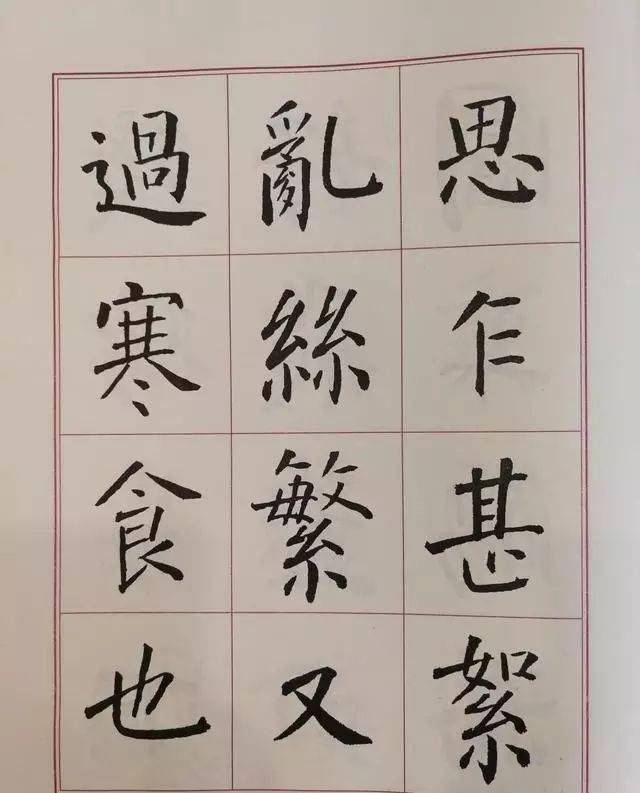 思乍甚絮
亂絲繁又
過寒食也